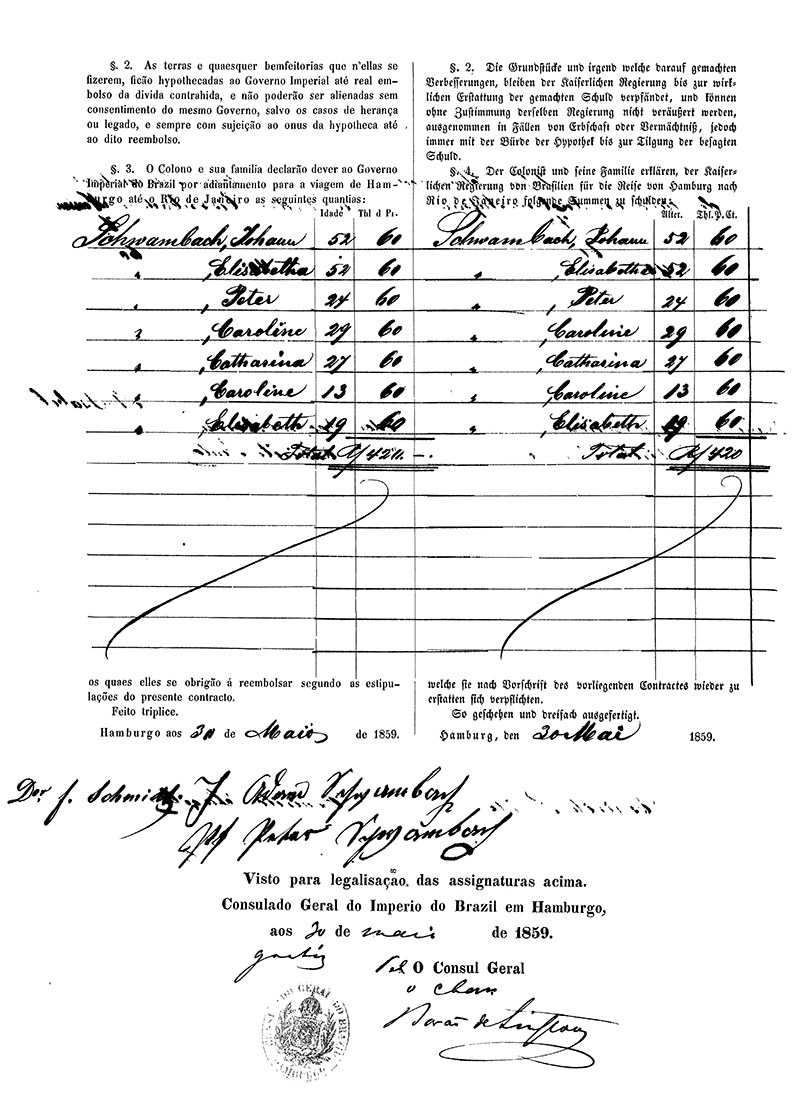 §. 2. As terras e quaesquer bemfeitorias que n'ellas se
fizerem, ficão hypothecadas ao Governo Imperial até real em-
bolso da divida contrahida, e não poderão ser alienadas sem
consentimento do mesmo Governo, salvo os casos de herança
ou legado, e sempre com sujeição ao onus da hypotheca até
ao dito reembolso.
§. 3. O Colono e sua familia declarão dever ao Governo
Imperial do Brazil por adiantamento para a viagem de Ham-
burgo até o Rio de Janeiro as seguintes quantias:
Idade Thl d Pr.
Schwambach, Johann 52 60
" , Elisabetha 52 60
" , Peter 24 60
" , Caroline 29 60
" , Catharina 27 60
" , Caroline 13 60
" , Elisabeth 19 60
Total 420
os quaes elles se obrigão á reembolsar segundo as estipu-
lações do presente contracto.
Feito triplice.
Hamburgo aos de Maio de 1859.
§. 2. Die Grundstücke und irgend welche darauf gemachten
Verbesserungen, bleiben der Kaiserlichen Regierung bis zur wirk-
lichen Erstattung der gemachten Schuld verpfändet, und können
ohne Zustimmung derselben Regierung nicht veräußert werden,
ausgenommen in Fällen von Erbschaft oder Vermächtniß, jedoch
immer mit der Bürde der Hypothek bis zur Tilgung der besagten
Schuld.
§. 4. Der Colonist und seine Familie erklären, der Kaiser-
lichen Regierung von Brasilien für die Reise von Hamburg nach
Rio de Janeiro folgende Summen zu schulden:
Alter. Thl. P. Ct.
Schwambach, Johann 52 60
" , Elisabetha 52 60
" , Peter 24 60
" , Caroline 29 60
" , Catharina 27 60
" , Caroline 13 60
" , Elisabeth 19 60
Total 420
welche sie nach Vorschrift des vorliegenden Contractes wieder zu
erstatten sich verpflichten.
So geschehen und dreifach ausgefertigt.
Hamburg, den 30 Mai 1859.
Der f. Schmidt. J Adam Schwambach
Peter Schwambach
Visto para legalisação das assignaturas acima.
Consulado Geral do Imperio do Brazil em Hamburgo,
aos 30 de maio de 1859.
gratis
Pel O Consul Geral
o